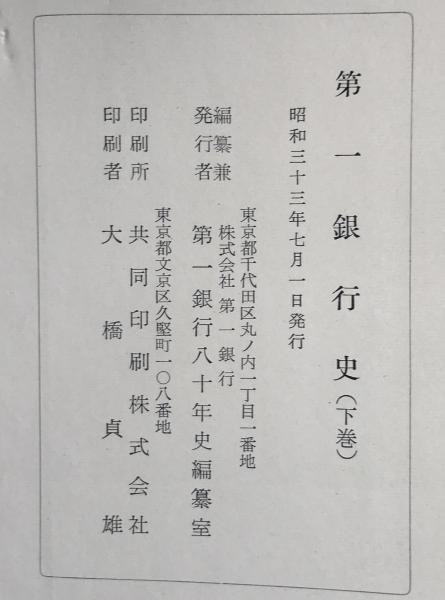 第一銀行史(下巻)
昭和三十三年七月一日発行
東京都千代田区丸ノ内一丁目一番地
株式会社 第一銀行
編纂兼
発行者 第一銀行八十年史編纂室
東京都文京区久堅町一〇八番地
印刷所 共同印刷株式会社
印刷者 大橋貞雄